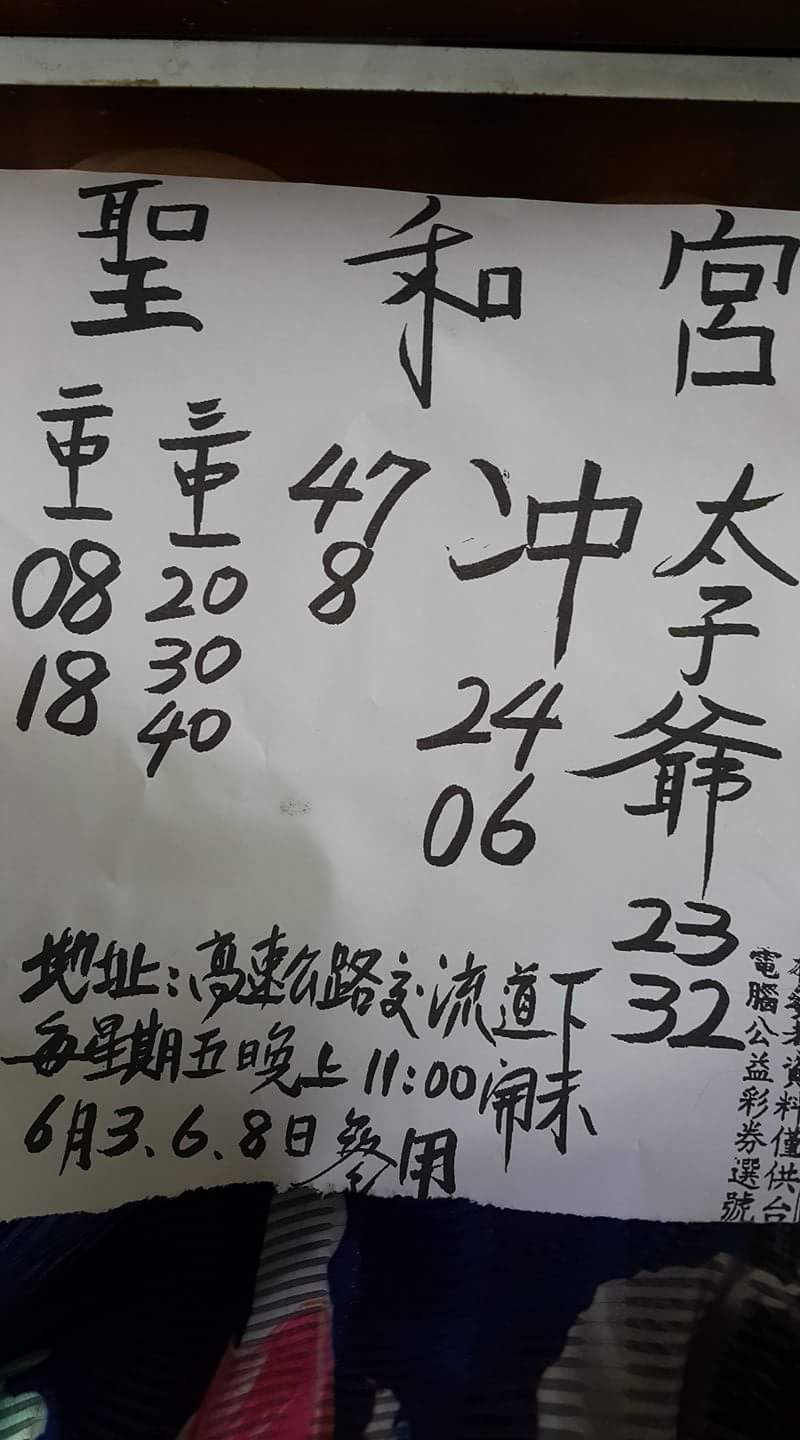 聖和宮
太子爺
23
32
冲
24
06
47
8
三中一
20
30
40
二中一
08
18
地址:高速公路交流道下
每星期五晚上11:00開
6月3、6、8日參用
資料僅供台
電腦公益彩券選號